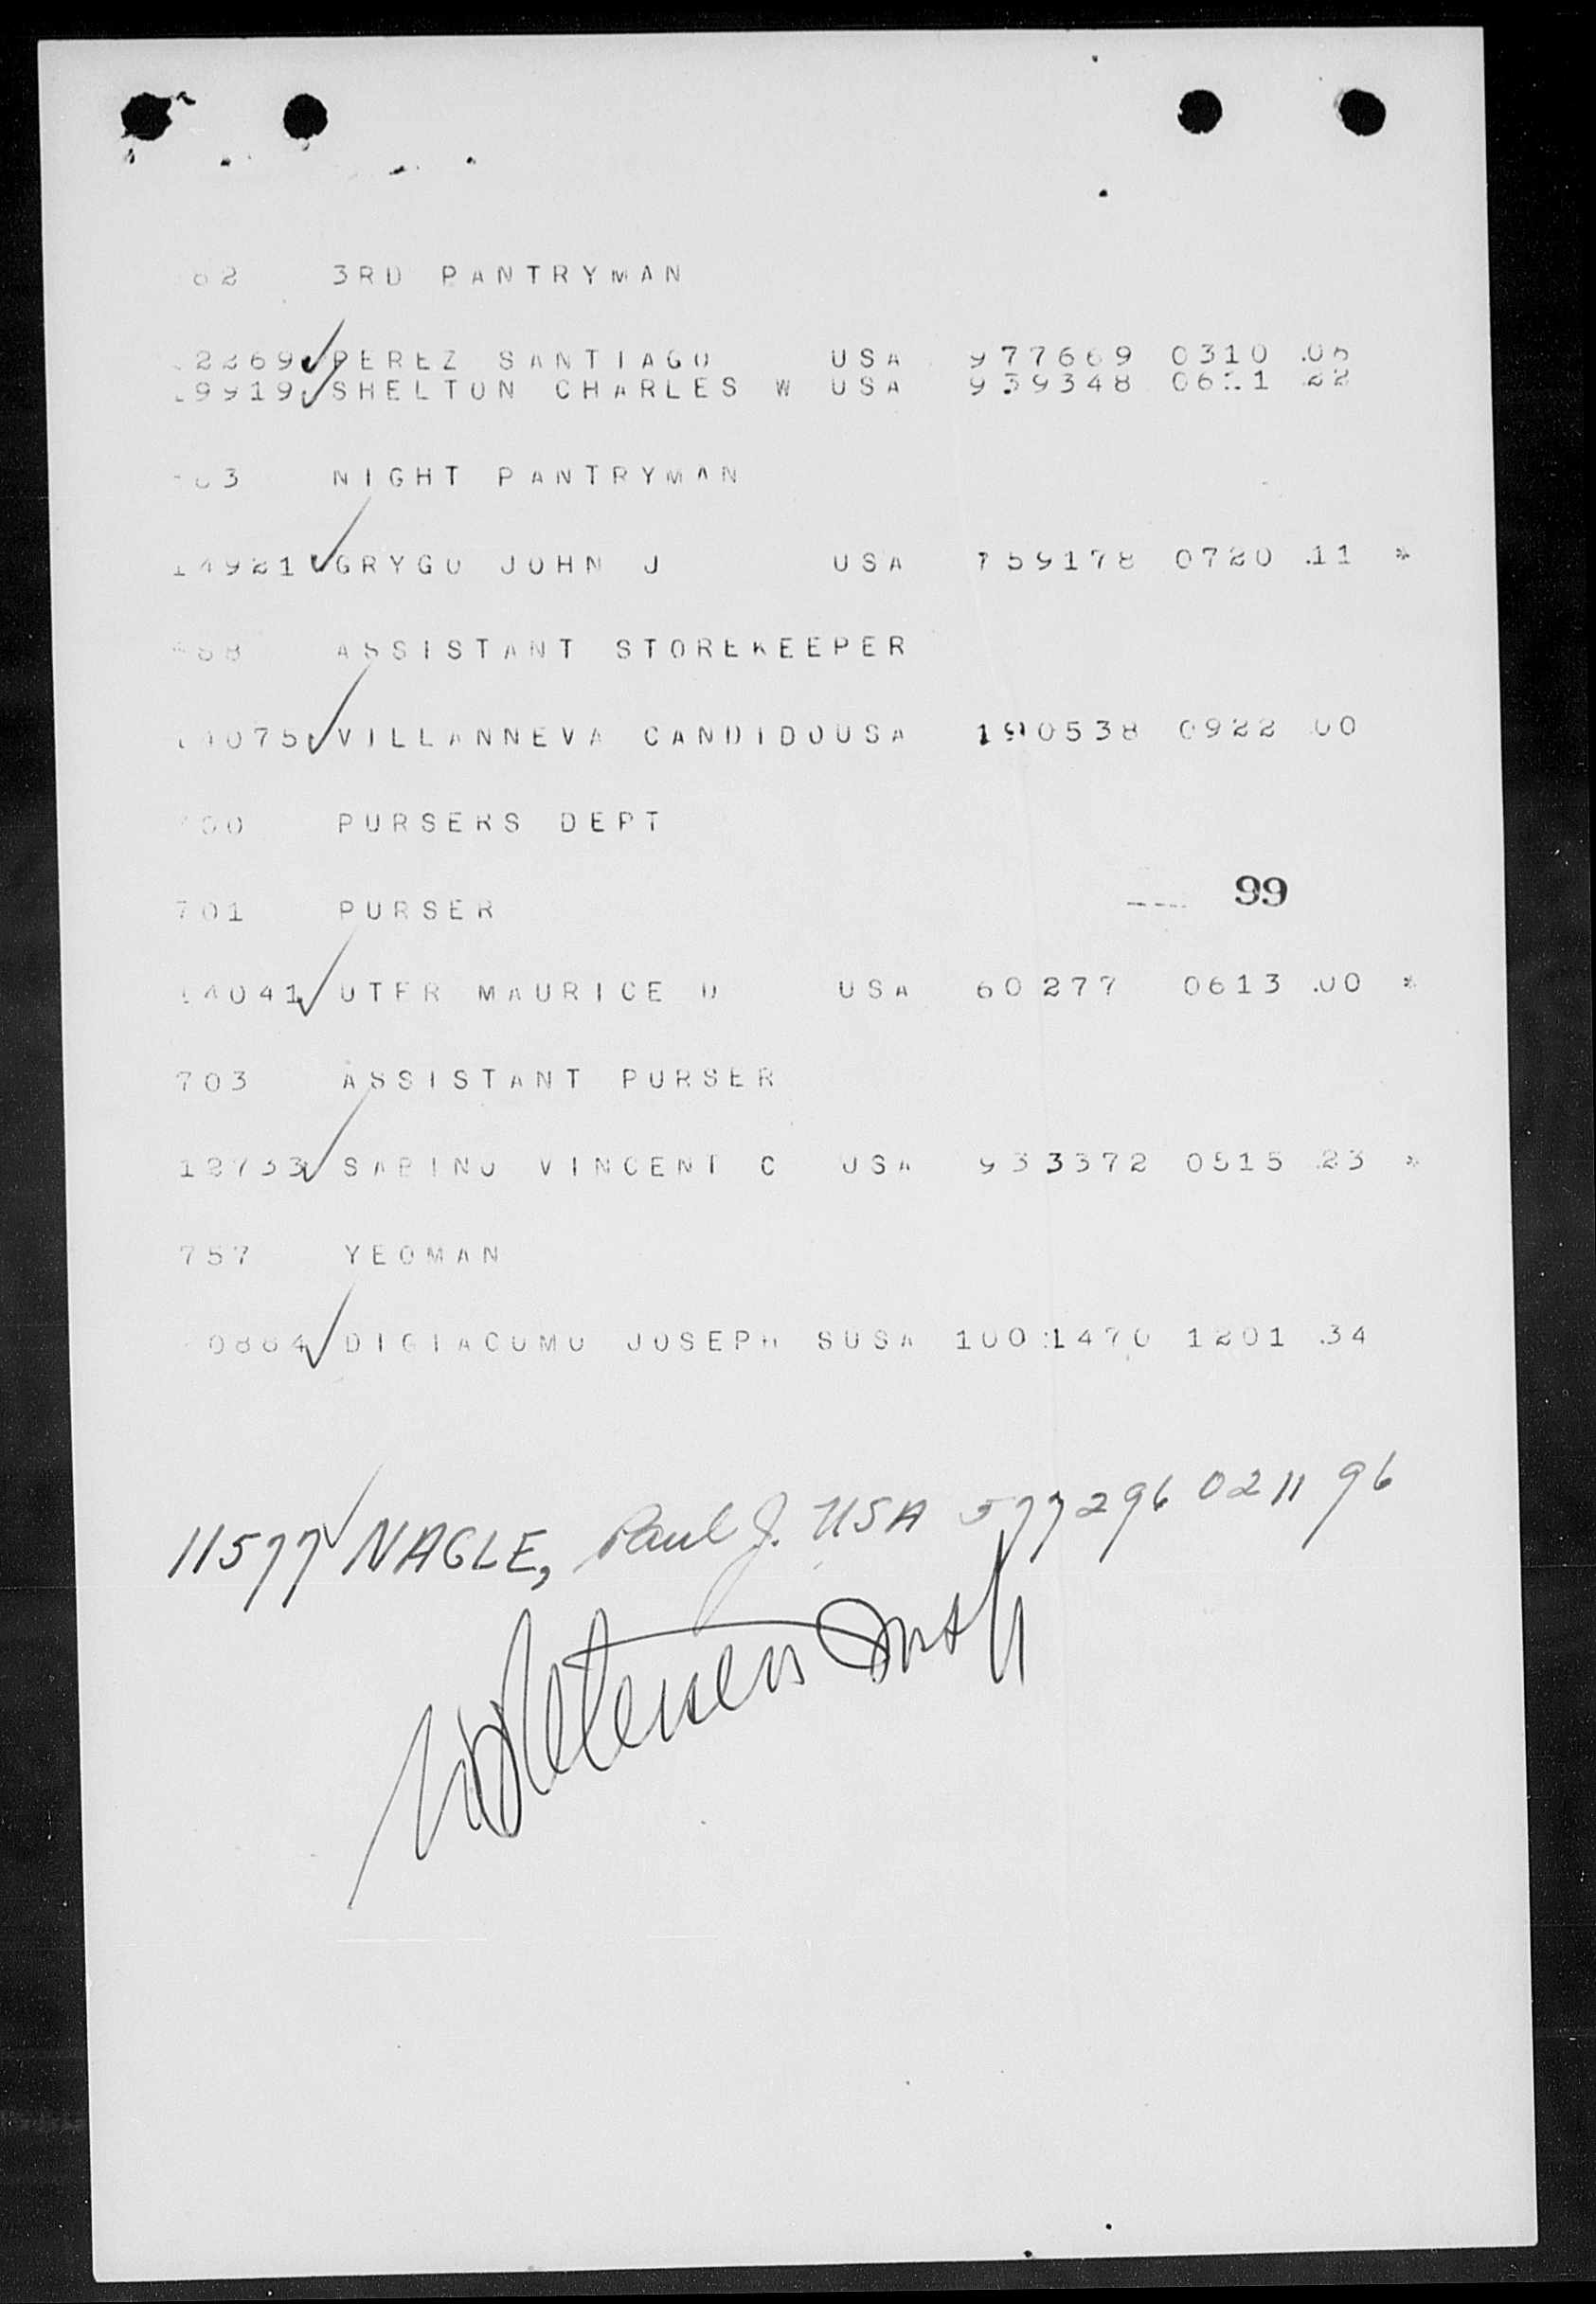 62 3RD PANTRYMAN
2269 PEREZ SANTIAGO USA 977669 0310 .05
9919 SHELTON CHARLES W USA 939348 0611 22
63 NIGHT PANTRYMAN
14921 GRYGO JOHN J USA 759178 0720 .11 *
ASSISTANT STOREKEEPER
14075 VILLANNEVA CANDIDOUSA 190538 0922 00
700 PURSERS DEPT
99
701 PURSER
14041 UTER MAURICE D USA 60277 0613 .00 *
703 ASSISTANT PURSER
12733 SABINO VINCENT C USA 933372 0515 .23 *
757 YEOMAN
0884 DIGIACOMO JOSEPH SUSA 1001470 1201 .34
11577 NAGLE, Paul J. USA 577296 0211 96